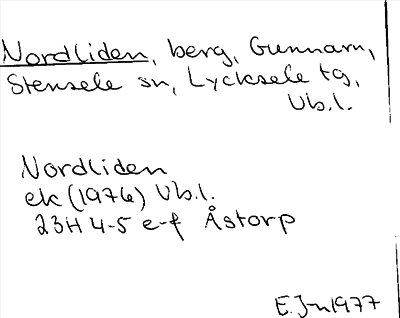 Nordliden, berg, Gunnarn,
Stensele sn, Lycksele tg,
Vb.l.
Nordliden
ek (1976) Vb.l.
23H 4-5 e-f Åstorp
E.J-n 1977